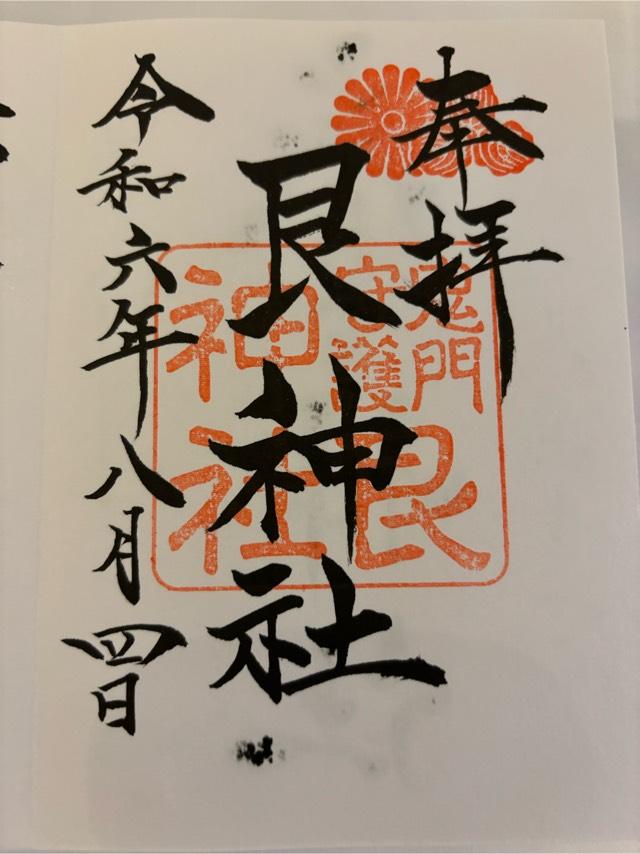 奉拝
鬼門
守護
艮
神社
艮神社
令和六年八月四日